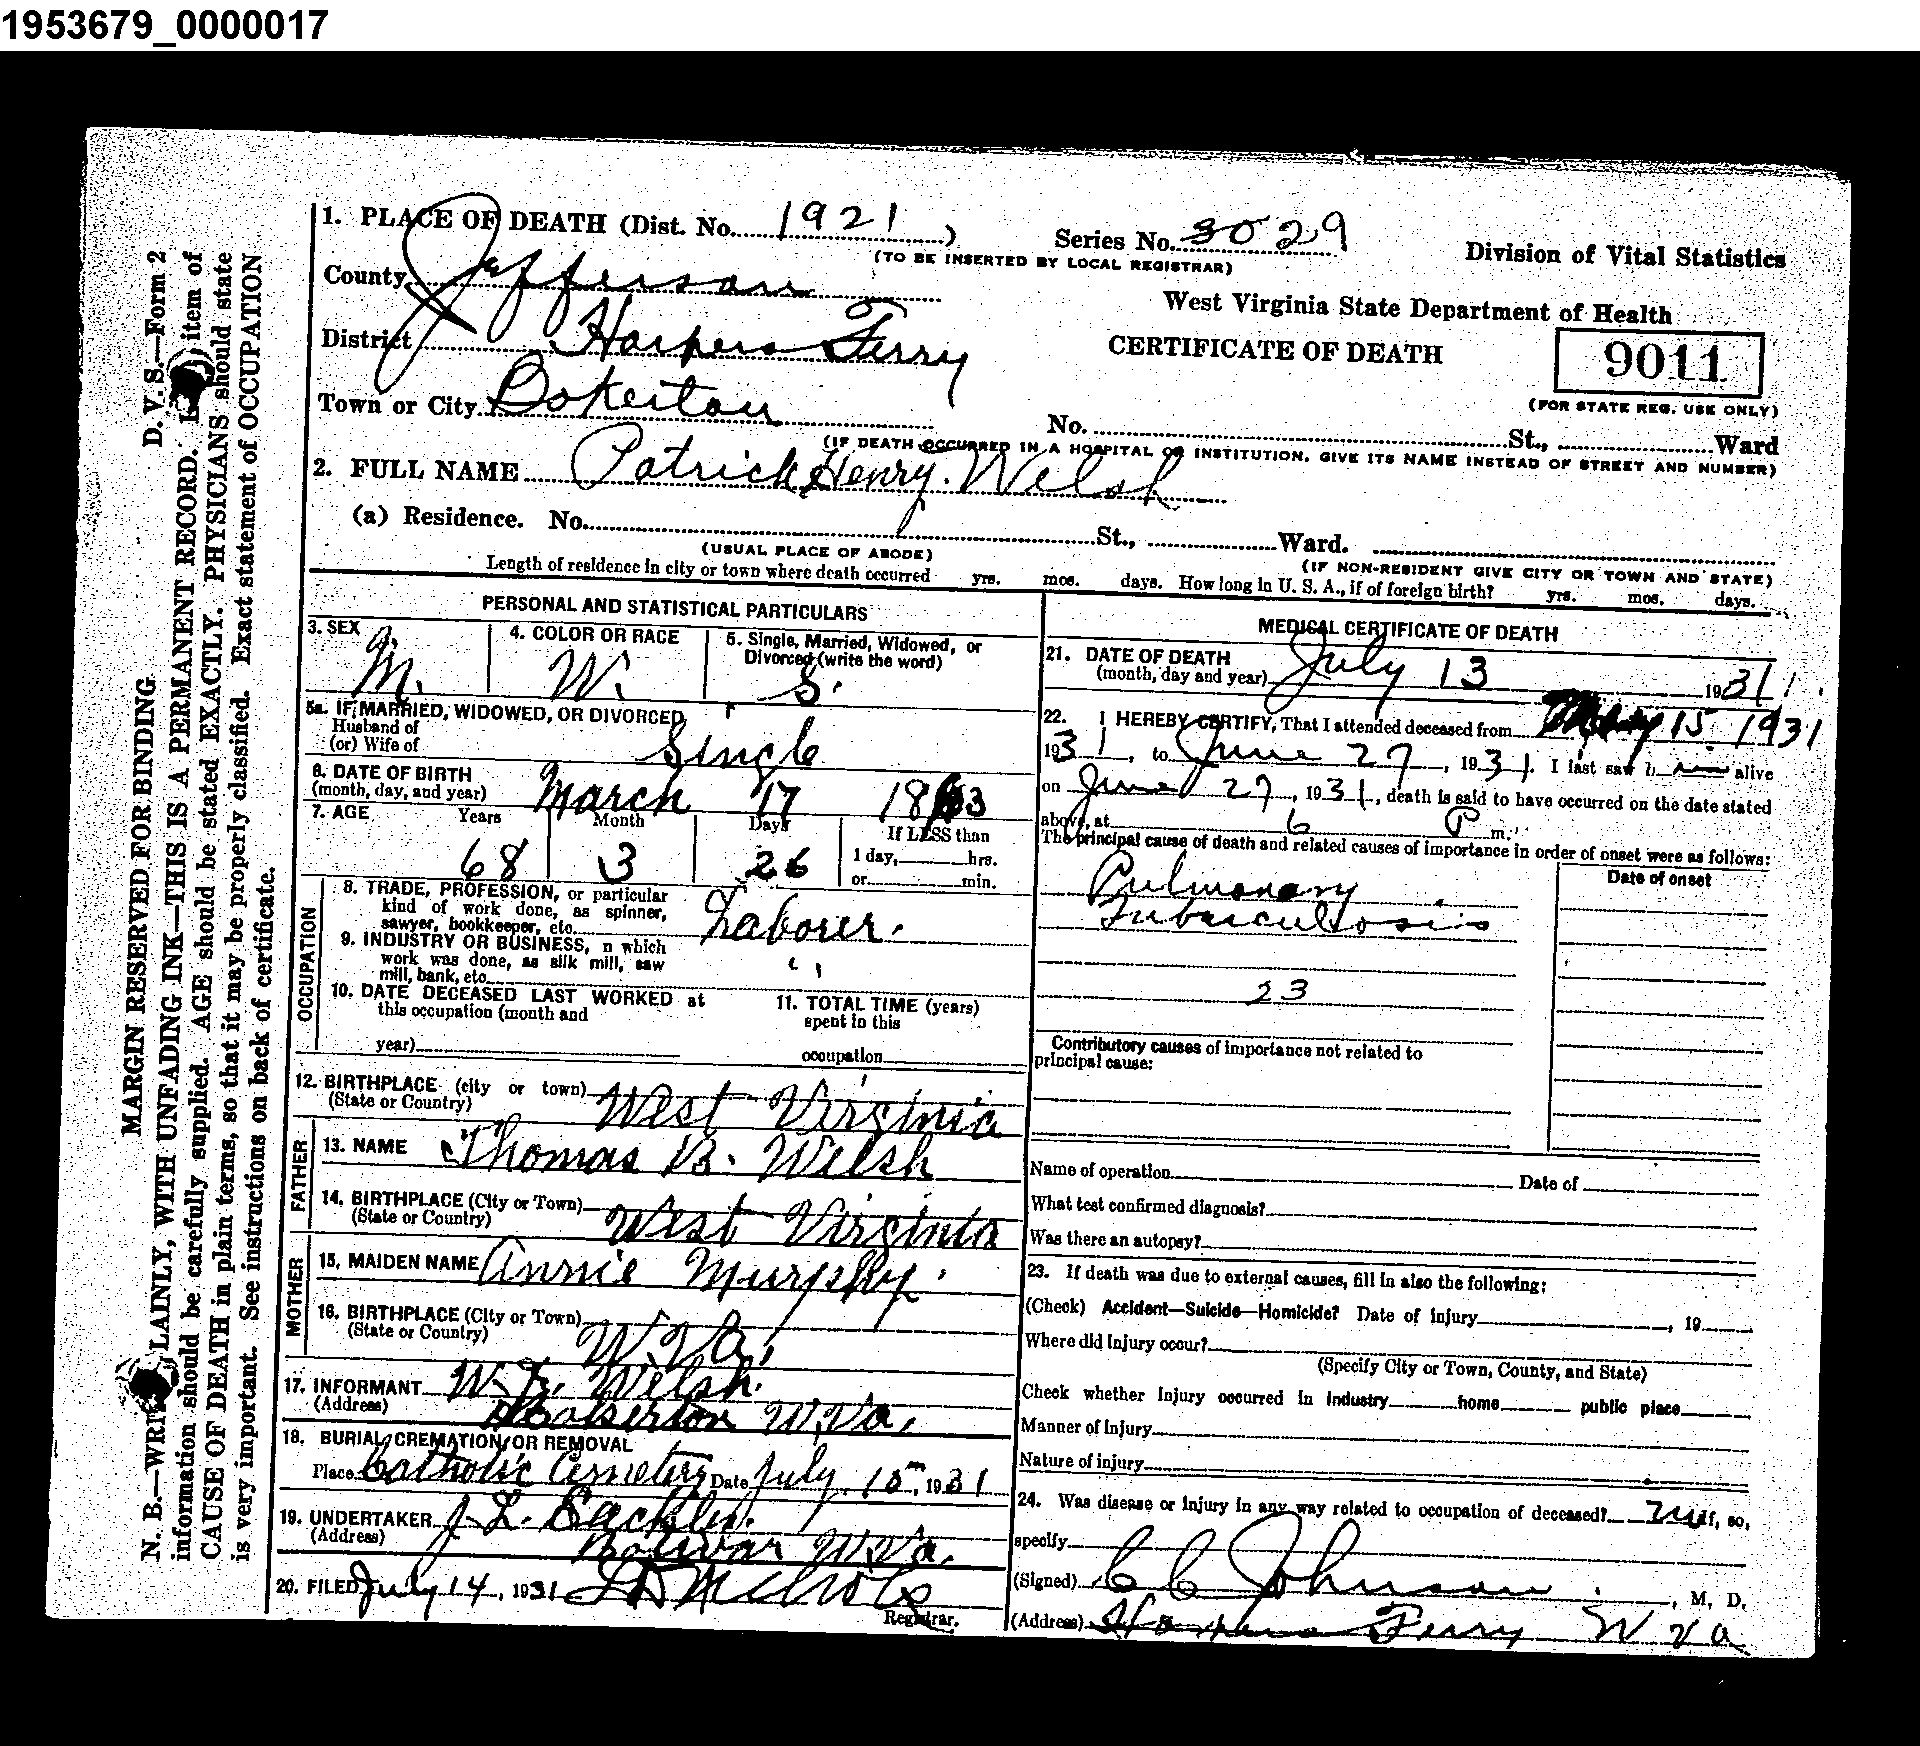 1953679_0000017
1. PLACE OF DEATH (Dist. No. 1921 )
Series No. 3029
(TO BE INSERTED BY LOCAL REGISTRAR)
Division of Vital Statistics
County Jefferson
West Virginia State Department of Health
District Harpers Ferry
CERTIFICATE OF DEATH
9011
(FOR STATE REG. USE ONLY)
Town or City Bokerton
No. St., Ward
(IF DEATH OCCURRED IN A HOSPITAL OR INSTITUTION, GIVE ITS NAME INSTEAD OF STREET AND NUMBER)
2. FULL NAME Patrick Henry. Welsh
(a) Residence. No. St., Ward.
(USUAL PLACE OF ABODE)
(IF NON-RESIDENT GIVE CITY OR TOWN AND STATE)
Length of residence in city or town where death occurred yrs. mos. days. How long in U. S. A., if of foreign birth? yrs. mos. days.
PERSONAL AND STATISTICAL PARTICULARS
3. SEX M.
4. COLOR OR RACE W.
5. Single, Married, Widowed, or
Divorced (write the word)
S.
5a. IF MARRIED, WIDOWED, OR DIVORCED
Husband of
(or) Wife of Single
6. DATE OF BIRTH
(month, day, and year) March 17 1863
7. AGE Years Month Days If LESS than
68 3 26 1 day, hrs.
or min.
OCCUPATION
8. TRADE, PROFESSION, or particular
kind of work done, as spinner,
sawyer, bookkeeper, etc. Laborer.
9. INDUSTRY OR BUSINESS, n which
work was done, as silk mill, saw
mill, bank, etc. "
10. DATE DECEASED LAST WORKED at
this occupation (month and
year)
11. TOTAL TIME (years)
spent in this
occupation
12. BIRTHPLACE (city or town)
(State or Country) West Virginia
FATHER
13. NAME Thomas B. Welsh
14. BIRTHPLACE (City or Town)
(State or Country) West Virginia
MOTHER
15. MAIDEN NAME Annie Murphy.
16. BIRTHPLACE (City or Town)
(State or Country) W. Va.
17. INFORMANT Welsh.
(Address) Bakerton W. Va.
18. BURIAL, CREMATION, OR REMOVAL
Place Catholic Cemetery Date July 15", 1931
19. UNDERTAKER J. L.
(Address) Bolivar W. Va.
20. FILED July 14, 1931 Nichols
Registrar.
MEDICAL CERTIFICATE OF DEATH
21. DATE OF DEATH
(month, day and year) July 13 1931
22. I HEREBY CERTIFY, That I attended deceased from May 15. 1931
1931, to June 27, 1931. I last saw h alive
on June 27, 1931, death is said to have occurred on the date stated
above, at 6 P m.
The principal cause of death and related causes of importance in order of onset were as follows:
Date of onset
Pulmonary
Tuberculosis
23
Contributory causes of importance not related to
principal cause:
Name of operation Date of
What test confirmed diagnosis?
Was there an autopsy?
23. If death was due to external causes, fill in also the following:
(Check) Accident—Suicide—Homicide? Date of injury , 19
Where did injury occur?
(Specify City or Town, County, and State)
Check whether injury occurred in industry home public place
Manner of injury
Nature of injury
24. Was disease or injury in any way related to occupation of deceased? If, so,
specify
(Signed) C C Johnson. , M. D.
(Address) Harpers Ferry W Va
D. V. S.—Form 2
MARGIN RESERVED FOR BINDING
N. B.—WRITE PLAINLY, WITH UNFADING INK—THIS IS A PERMANENT RECORD. item of
information should be carefully supplied. AGE should be stated EXACTLY. PHYSICIANS should state
CAUSE OF DEATH in plain terms, so that it may be properly classified. Exact statement of OCCUPATION
is very important. See instructions on back of certificate.